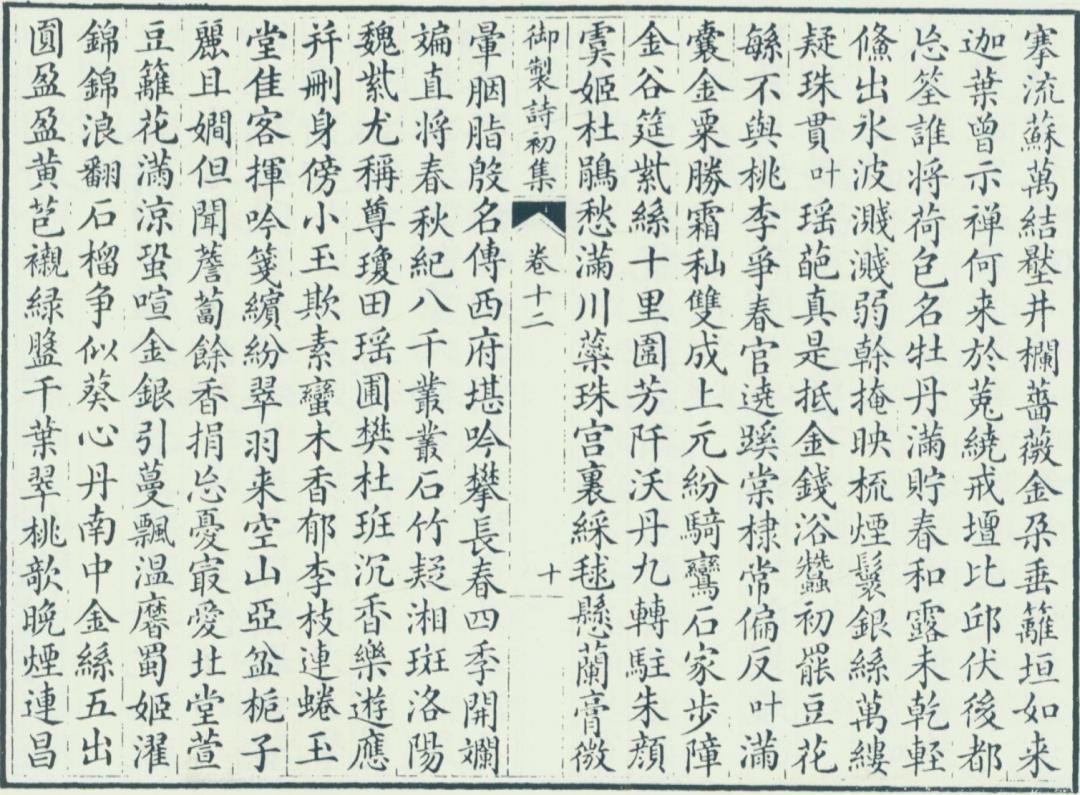 搴流蘇萬結甃井欄薔薇金朵垂籬垣如来
迦葉曾示禅何来於菟繞戒壇比邱伏後都
忘筌誰将荷包名牡丹滿貯春和露未乾軽
儵出氷波濺濺弱幹掩映梳煙鬟銀絲萬縷
疑珠貫叶瑶葩真是抵金錢浴蠶初罷豆花
緐不與桃李爭春官遶蹊棠棣常偏反叶滿
囊金粟勝霜秈雙成上元紛騎鸞石家步障
金谷筵紫絲十里圍芳阡沃丹九轉駐朱顔
虞姬杜鵑愁滿川蘂珠宫裏綵毬懸蘭膏微
御製詩初集 卷十二 十
暈胭脂殷名傳西府堪吟攀長春四季開斕
斒直将春秋紀八千叢叢石竹疑湘斑洛陽
魏紫尤稱尊瓊田瑶圃樊杜班沉香樂遊應
幷刪身傍小玉欺素蠻木香郁李枝連蜷玉
堂佳客揮吟箋繽紛翠羽来空山亞盆梔子
麗且嫺但聞薝蔔餘香捐忘憂冣愛北堂萱
豆籬花滿涼蛩喧金銀引蔓飄温麐蜀姬濯
錦錦浪翻石榴争似葵心丹南中金絲五出
圓盈盈黄苞襯緑盤千葉翠桃欹晩煙連昌